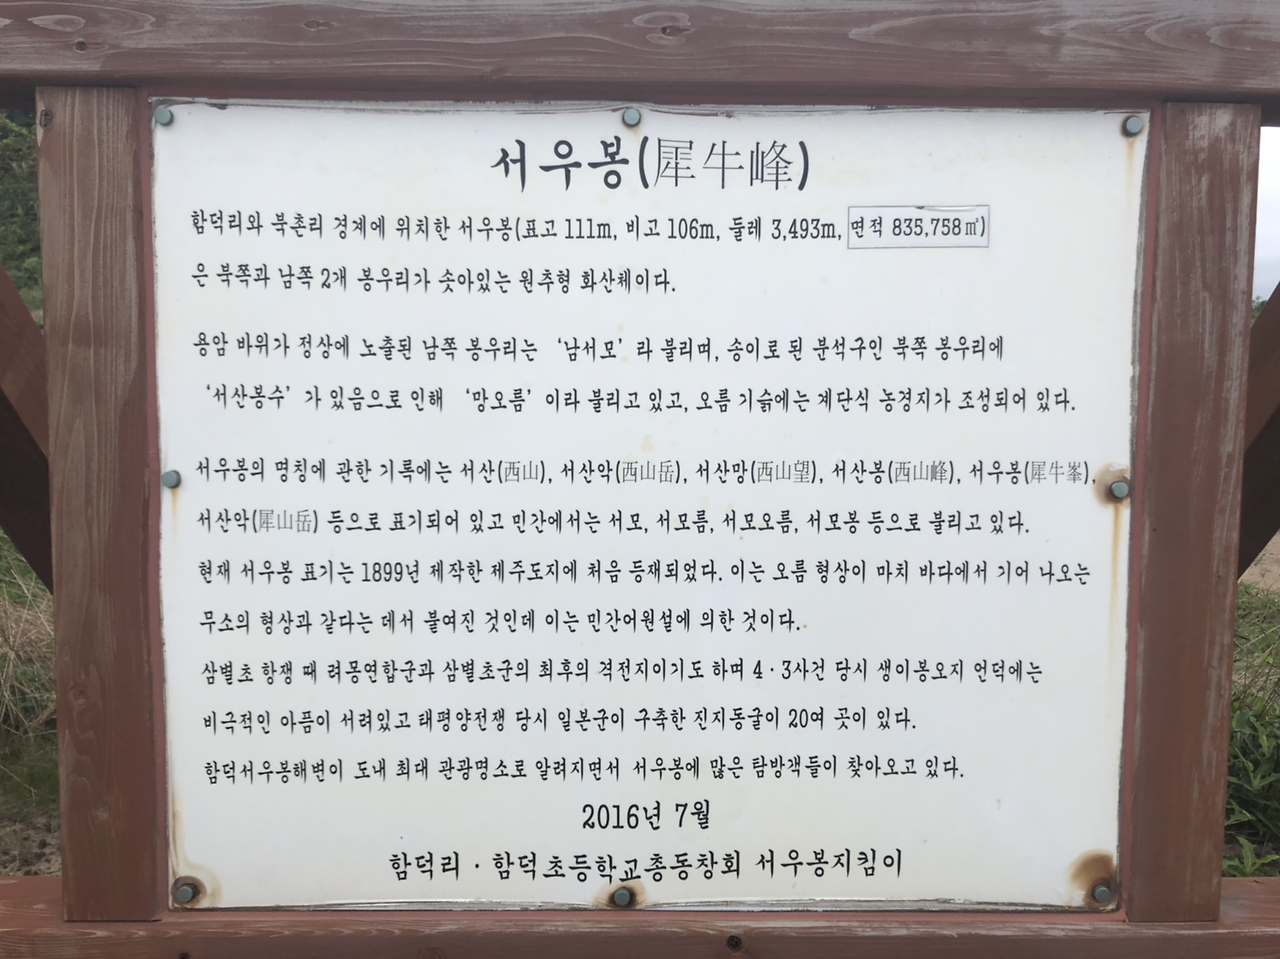 서우봉(犀牛峰)
함덕리와 북촌리 경계에 위치한 서우봉(표고 111m, 비고 106m, 둘레 3,493m, 면적 835,758㎡)
은 북쪽과 남쪽 2개 봉우리가 솟아있는 원추형 화산체이다.
용암 바위가 정상에 노출된 남쪽 봉우리는 ‘남서모’라 불리며, 송이로 된 분석구인 북쪽 봉우리에
‘서산봉수’가 있음으로 인해 ‘망오름’이라 불리고 있고, 오름 기슭에는 계단식 농경지가 조성되어 있다.
서우봉의 명칭에 관한 기록에는 서산(西山), 서산악(西山岳), 서산망(西山望), 서산봉(西山峰), 서우봉(犀牛峯),
서산악(犀山岳) 등으로 표기되어 있고 민간에서는 서모, 서모름, 서모오름, 서모봉 등으로 불리고 있다.
현재 서우봉 표기는 1899년 제작한 제주도지에 처음 등재되었다. 이는 오름 형상이 마치 바다에서 기어 나오는
무소의 형상과 같다는 데서 붙여진 것인데 이는 민간어원설에 의한 것이다.
삼별초 항쟁 때 려몽연합군과 삼별초군의 최후의 격전지이기도 하며 4·3사건 당시 생이봉오지 언덕에는
비극적인 아픔이 서려있고 태평양전쟁 당시 일본군이 구축한 진지동굴이 20여 곳이 있다.
함덕서우봉해변이 도내 최대 관광명소로 알려지면서 서우봉에 많은 탐방객들이 찾아오고 있다.
2016년 7월
함덕리·함덕초등학교총동창회 서우봉지킴이